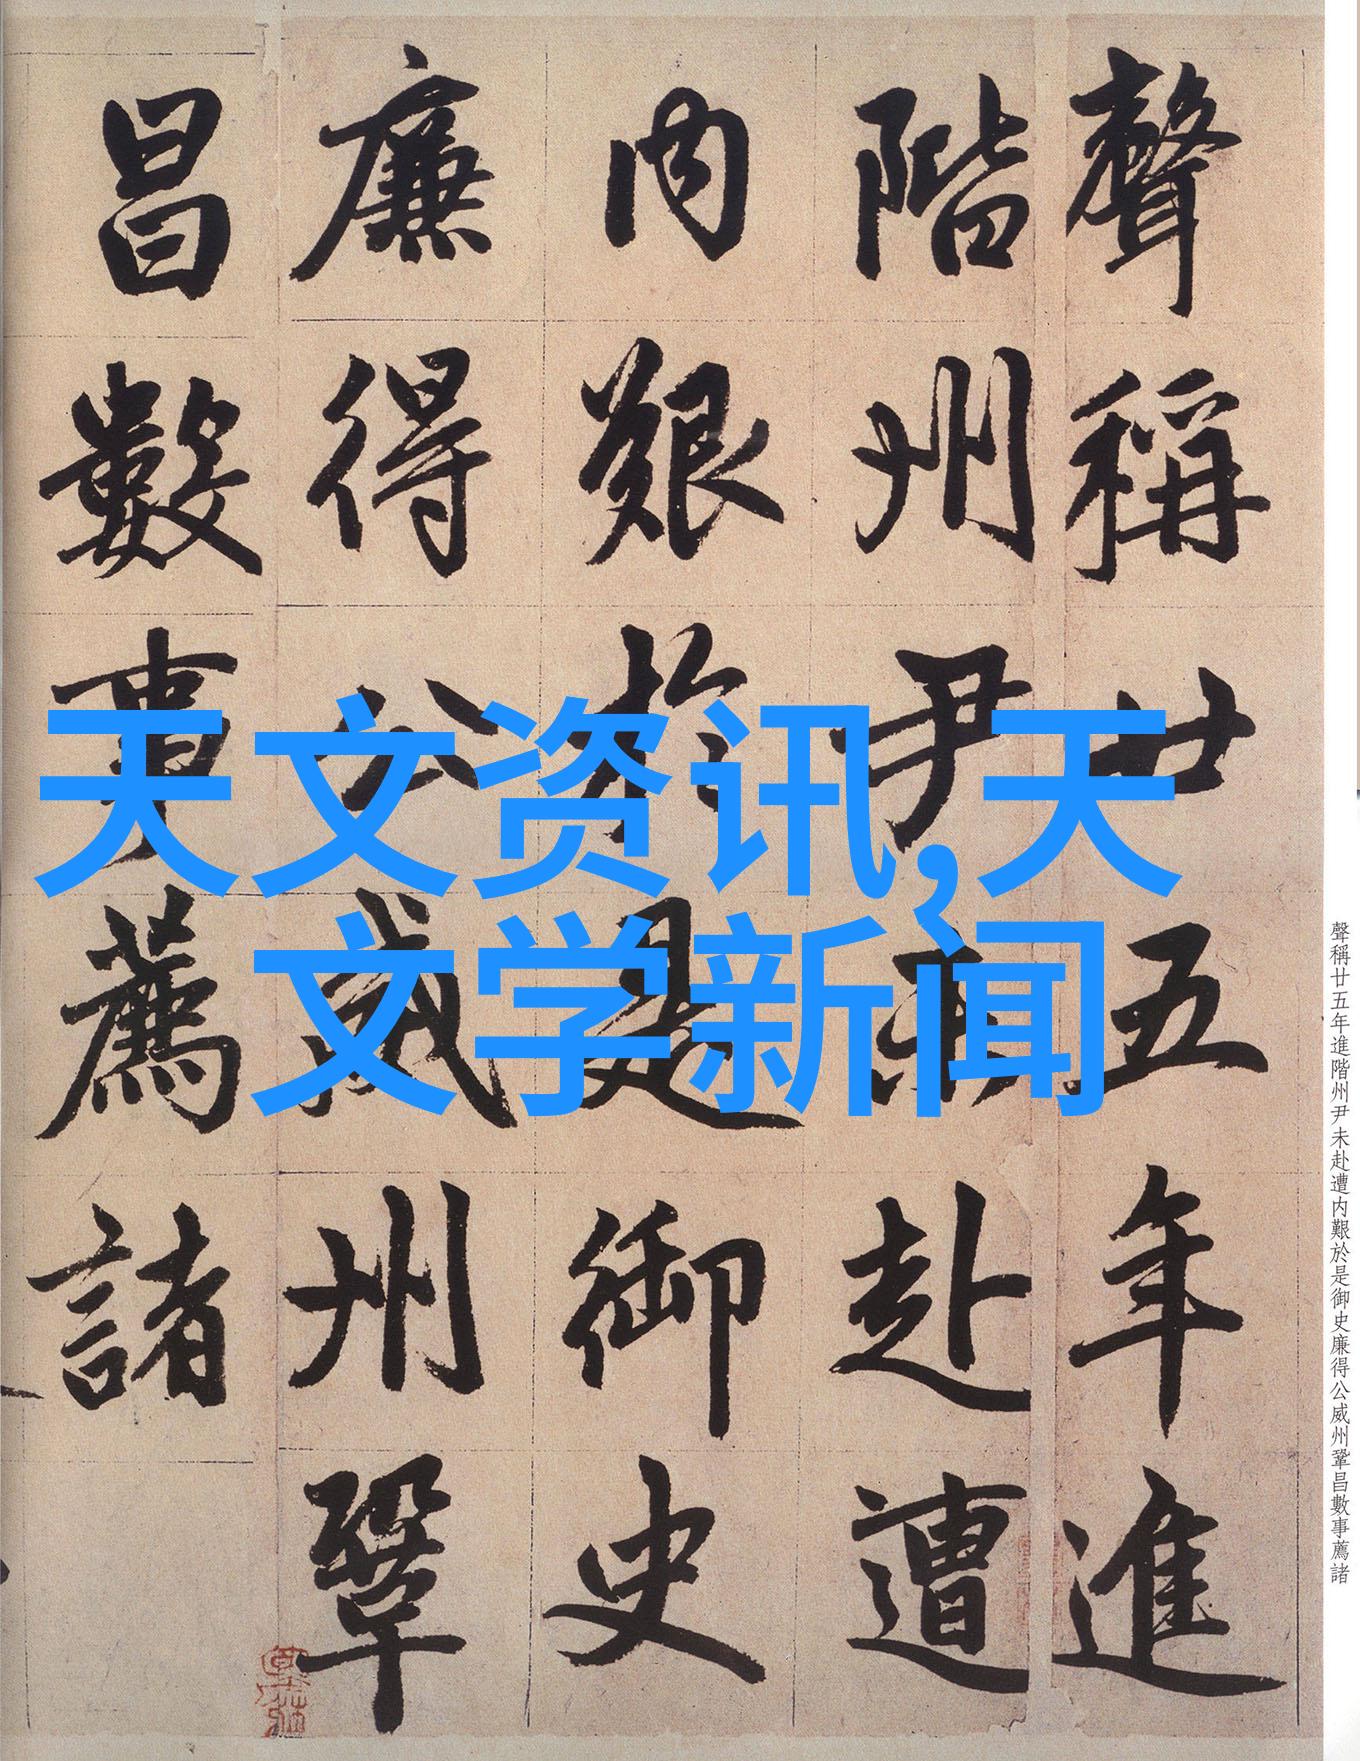 聲稱廿五年進
階州尹未赴遭
内艱於是御史
廉得公威州鞏
昌數事薦諸
天文资讯,天
文学新闻
聲稱廿五年進階州尹未赴遭内艱於是御史廉得公威州鞏昌數事薦諸